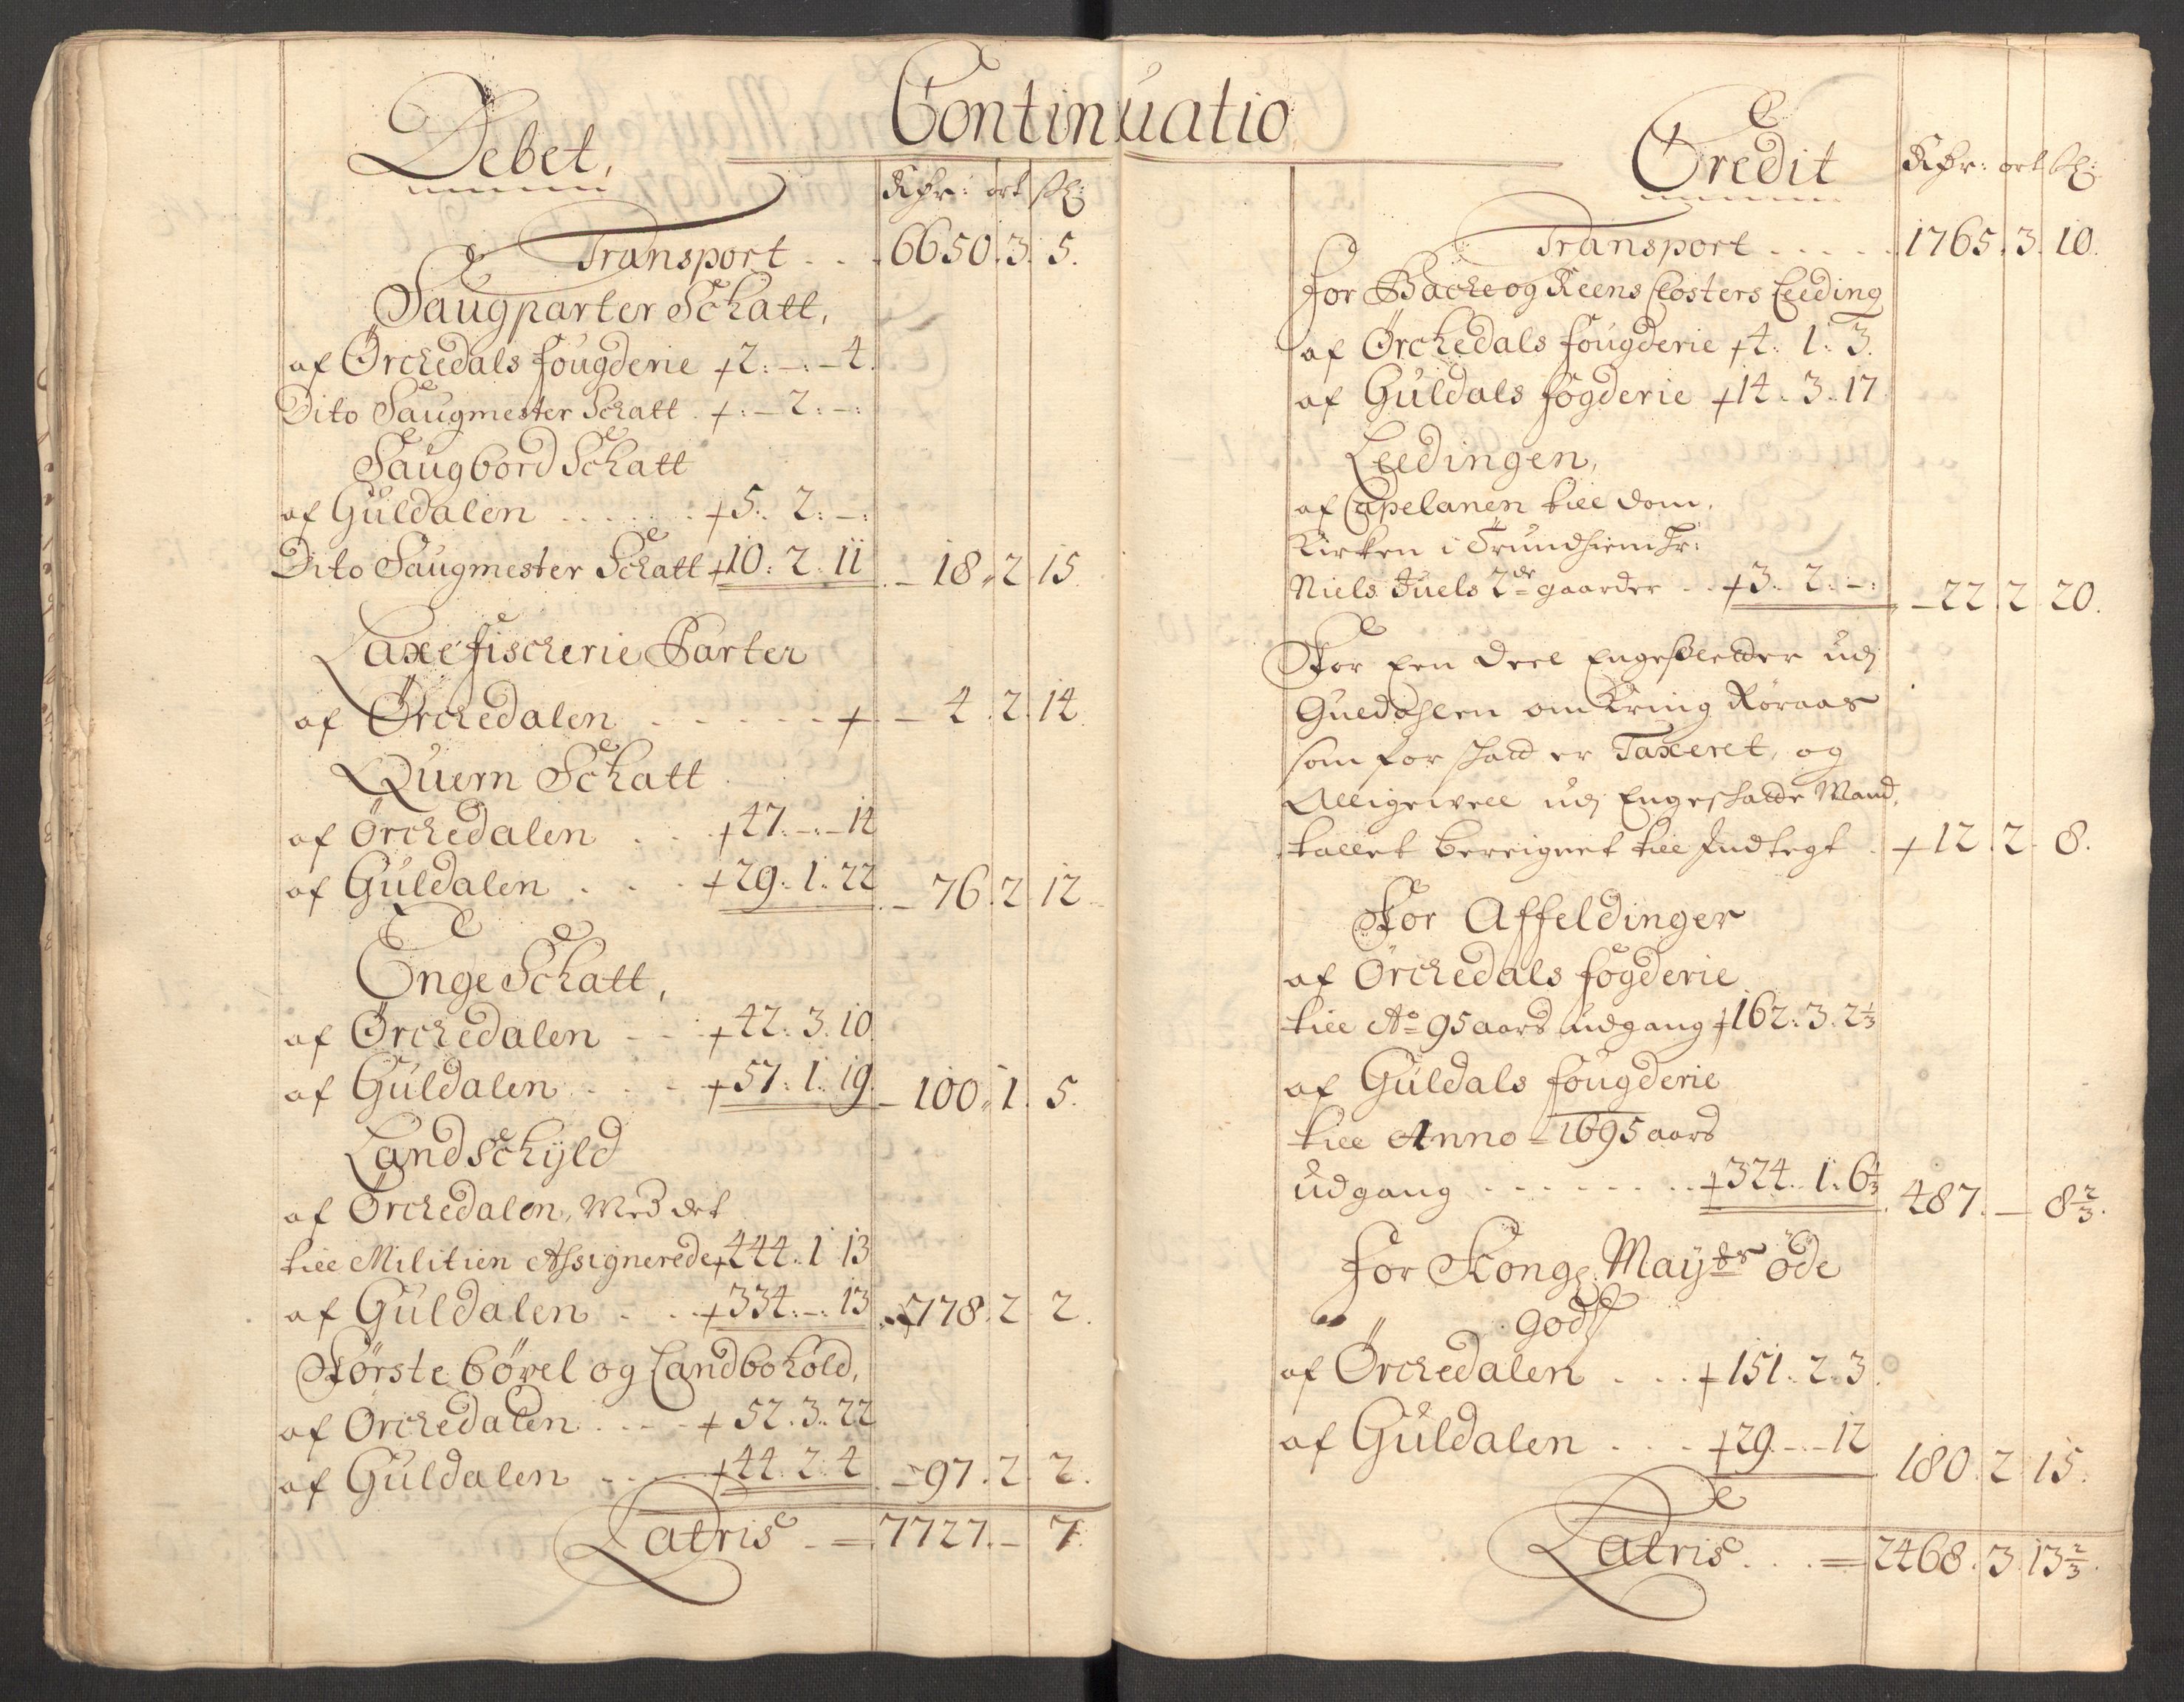 Continuatio
Debet,
Rdr: ort ß:
Transport . . 6650. 3. 5.
Saugparter Schatt,
af Örckedals fougderie +2: -: -4.
Dito Saugmester Schatt . +: - 2: -:
Saugbord Schatt
af Guldalen . . . . . +5. 2: -:
Dito Saugmester Schatt +10: 2: 11 - 18. 2. 15.
Laxefischerie Parter
af Örckedalen - - - - - - + - 4. 2. 14.
Quern Schatt
af Örckedalen . . . +47: -: -14
af Guldalen . . . +29: 1: 22 - 76. 2. 12
Enge Schatt,
af Örckedalen - - +42: 3. 10.
af Guldalen . . . - +57: 1: 19. - 100. 1. 5.
Landschyld
af Örckedalen, Med det
till Militien Assignerede +444. 1 13
af Guldalen . . . +334. -: 13 778. 2. 2.
Förstebövel og Landbohold,
af Örckedalen . . . - + 52. 3. 22
af Guldalen - - - - +44. 2. 4. - 97. 2. 2.
Latris - = 7727. - 7.
Credit
Rdr: ort ß:
Transport - - - - - 1765. 3. 10.
for Backe og Reens Closters Leeding
af Örckedals fougderie +4: 1: 3.
af Guldals fogderie +14. 3. 17
Leedingen,
af Capelanen till Dom,
Kirken i Trundhiem Hr:
Niels Juels 2de gaarder - - +3. 2. -: - 22. 2. 20.
For een deel Engesletter udj
Guldahlen omkring Röraas
som for schatt er Taxeret, og
Alligevell udj Engeschatte Mand,
tallet bereignet till Indtegt . +12. 2. 8.
For Affeldinger
af Örckedals fogderie
till Ao 95 aars udgang +162: 3. 2 1/3
af Guldals fougderie
till Anno 1695 aars
udgang - - - - - - +324. 1. 6 1/3 487. - 8 2/3.
for Kongl: Mayts öde
godß
af Örckedalen . . . +151. 2. 3.
af Guldalen . . . - +29. - -12 180. 2. 15.
Latris . . . = 2468. 3. 13 2/3.